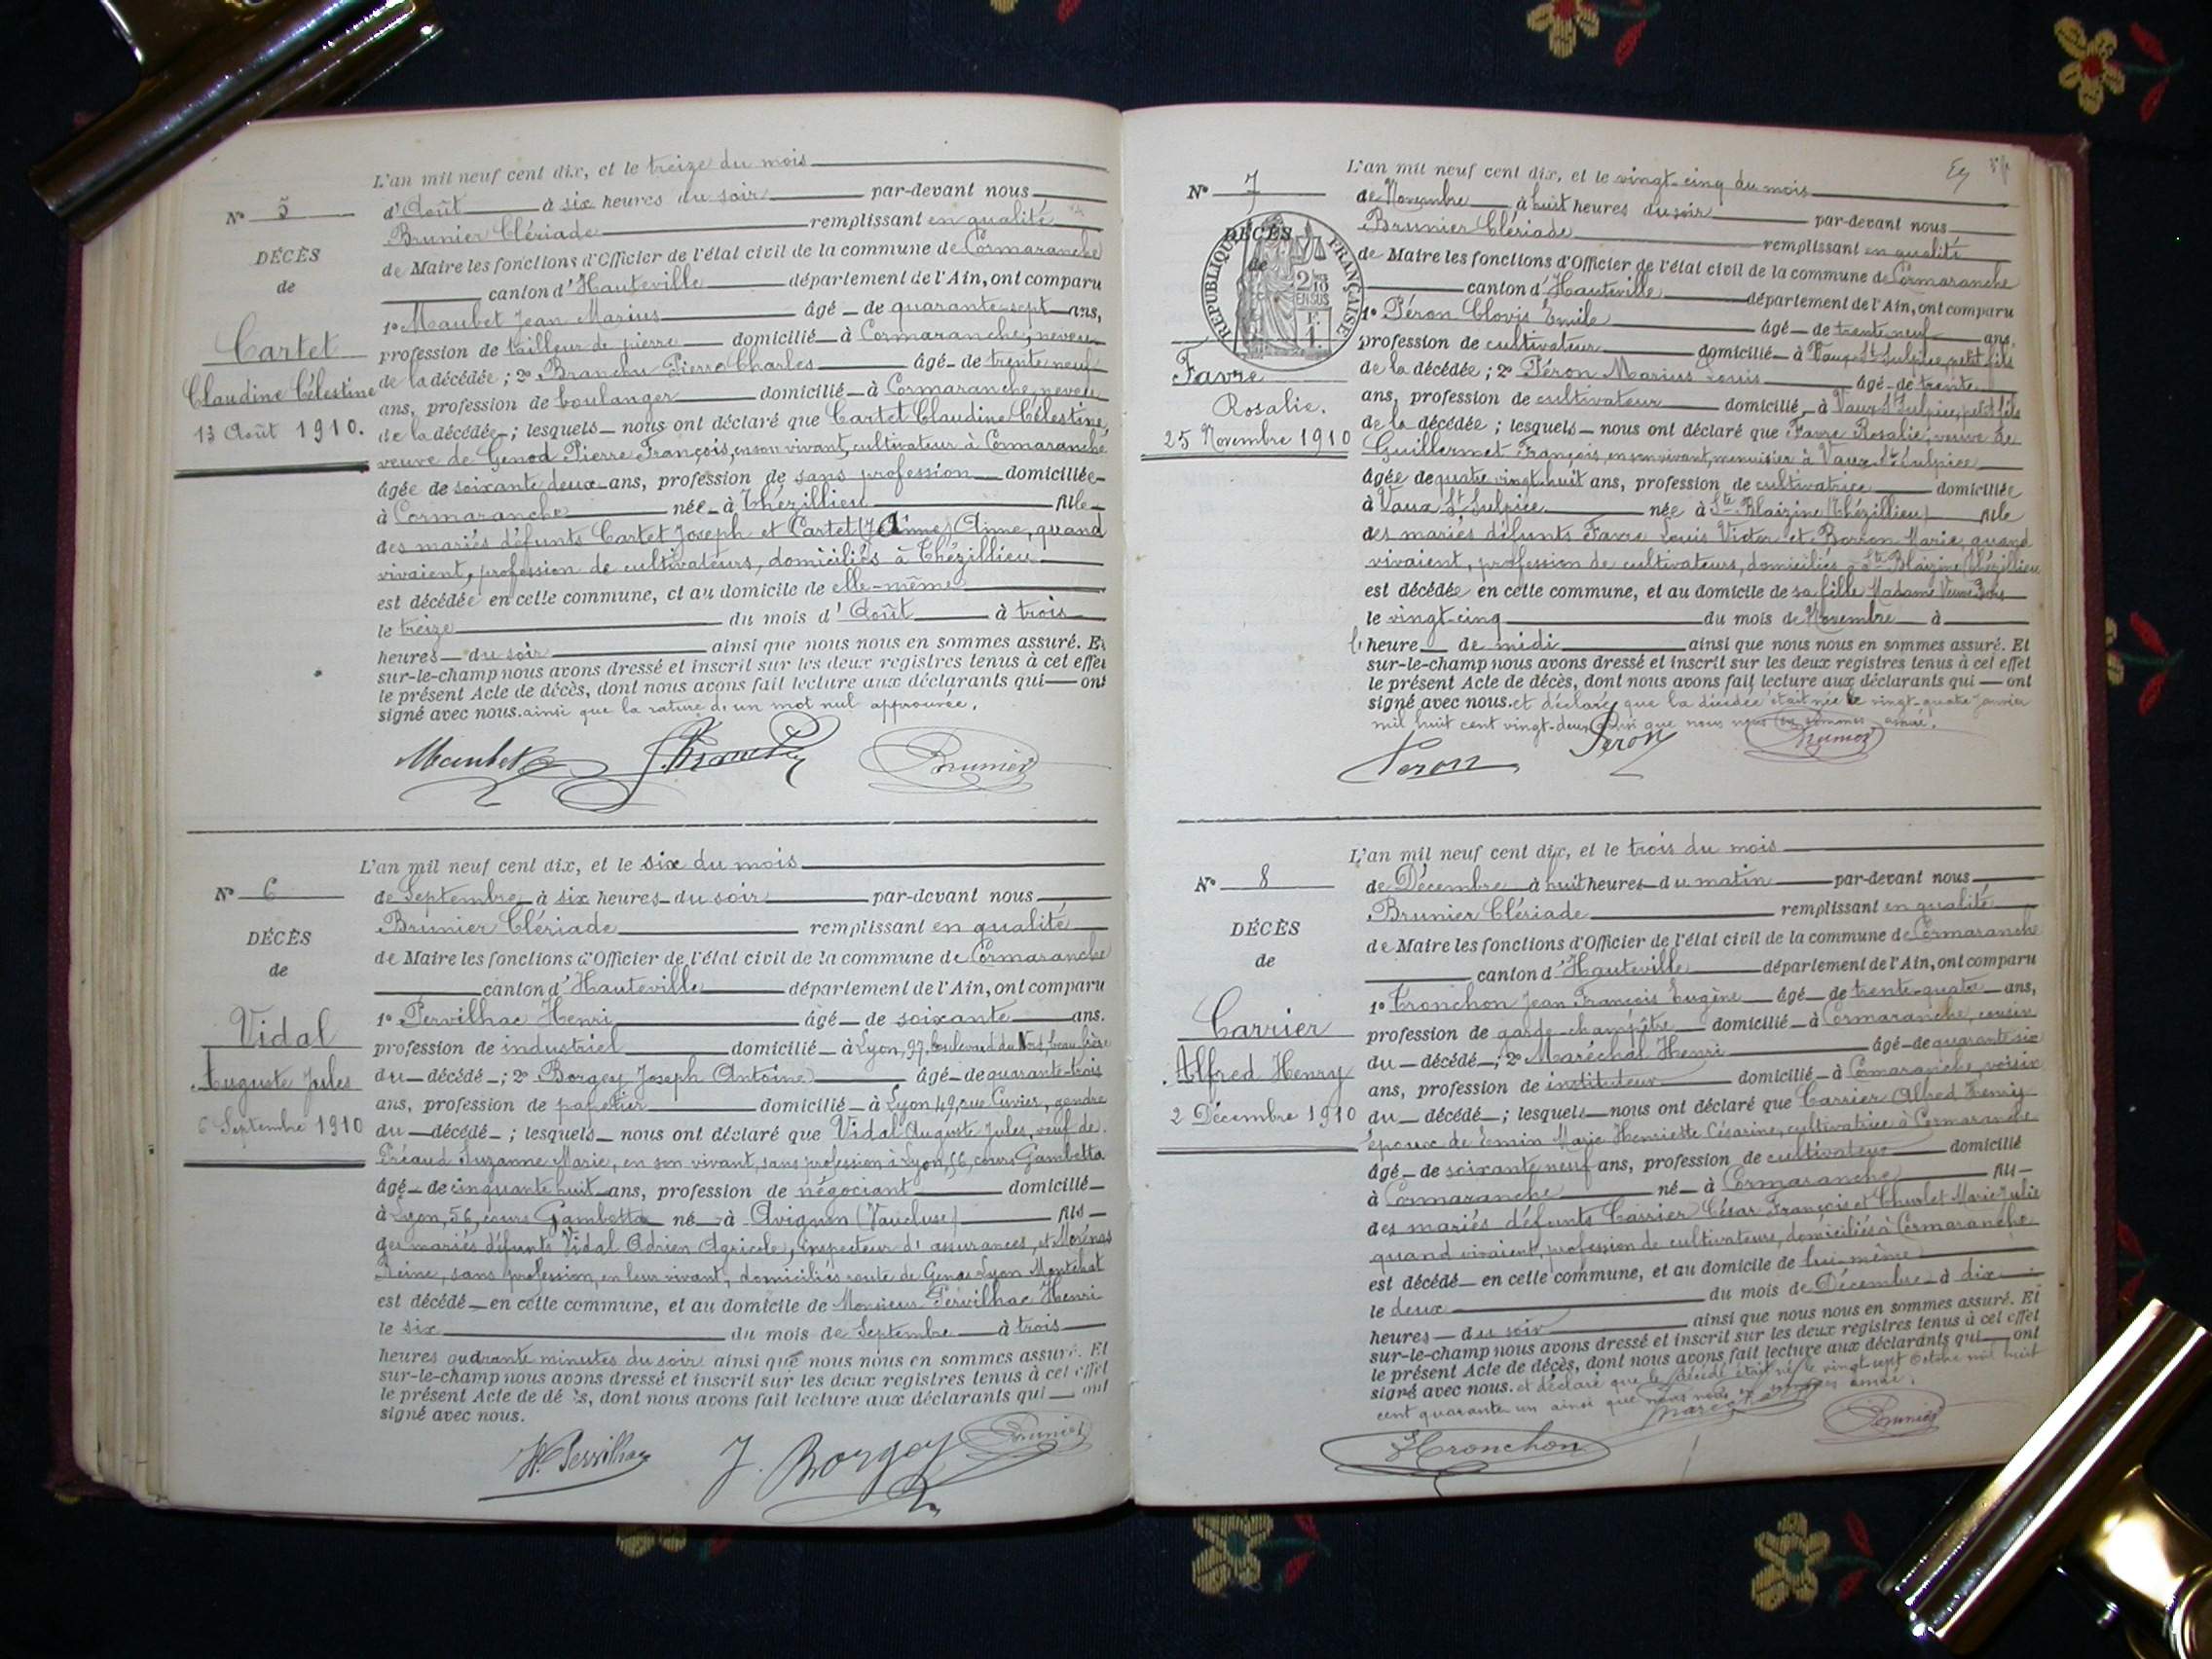 L'an mil neuf cent dix, et le treize du mois
N° 5
d'Août à six heures du soir par-devant nous
Brunier Clériade remplissant en qualité
DÉCÈS
de Maire les fonctions d'Officier de l'état civil de la commune de Cormaranche
de
canton d'Hauteville département de l'Ain, ont comparu
1° Maubet Jean Marius âgé de quarante-sept ans,
Cartet
profession de tailleur de pierre domicilié à Cormaranche, neveu
Claudine Célestine
de la décédée ; 2° Branchu Pierre Charles âgé de trente neuf
ans, profession de boulanger domicilié à Cormaranche, neveu
13 Août 1910.
de la décédée ; lesquels nous ont déclaré que Cartet Claudine Célestine,
veuve de Genod Pierre François, en son vivant, cultivateur à Cormaranche
âgée de soixante deux ans, profession de sans profession domiciliée
à Cormaranche née à Thézillieu fille
des mariés défunts Cartet Joseph et Cartet Anne, quand
vivaient, profession de cultivateurs, domiciliés à Thézillieu
est décédée en cette commune, et au domicile de elle-même
le treize du mois d'Août à trois
heures du soir ainsi que nous nous en sommes assuré. Et
sur-le-champ nous avons dressé et inscrit sur les deux registres tenus à cet effet
le présent Acte de décès, dont nous avons fait lecture aux déclarants qui ont
signé avec nous. ainsi que la rature d'un mot nul approuvée.
Maubet Branchu Brunier
L'an mil neuf cent dix, et le six du mois
N° 6
de Septembre à six heures du soir par-devant nous
Brunier Clériade remplissant en qualité
DÉCÈS
de Maire les fonctions d'Officier de l'état civil de la commune de Cormaranche
de
canton d'Hauteville département de l'Ain, ont comparu
1° Pervilhac Henri âgé de soixante ans.
Vidal
profession de industriel domicilié à Lyon, 97, boulevard du Nord, beau frère
Auguste Jules
du décédé ; 2° Borgey Joseph Antoine âgé de quarante-trois
ans, profession de papetier domicilié à Lyon 49, rue Cuvier, gendre
6 Septembre 1910
du décédé ; lesquels nous ont déclaré que Vidal Auguste Jules, veuf de
Préaud Suzanne Marie, en son vivant, sans profession à Lyon, 56, cours Gambetta
âgé de cinquante huit ans, profession de négociant domicilié
à Lyon, 56, cours Gambetta né à Avignon (Vaucluse) fils
des mariés défunts Vidal Adrien Agricole, inspecteur d'assurances, et Morénas
Reine, sans profession, en leur vivant, domiciliés route de Genas Lyon Montchat
est décédé en cette commune, et au domicile de Monsieur Pervilhac Henri
le six du mois de Septembre à trois
heures quarante minutes du soir ainsi que nous nous en sommes assuré. Et
sur-le-champ nous avons dressé et inscrit sur les deux registres tenus à cet effet
le présent Acte de décès, dont nous avons fait lecture aux déclarants qui ont
signé avec nous.
H. Pervilhac J. Borgey Brunier
L'an mil neuf cent dix, et le vingt-cinq du mois
N° 7
de Novembre à huit heures du soir par-devant nous
Brunier Clériade remplissant en qualité
DÉCÈS
de
RÉPUBLIQUE FRANÇAISE
2/10
EN SUS
de Maire les fonctions d'Officier de l'état civil de la commune de Cormaranche
canton d'Hauteville département de l'Ain, ont comparu
1° Péron Clovis Emile âgé de trente neuf ans,
profession de cultivateur domicilié à Vaux St Sulpice, petit fils
Favre
de la décédée ; 2° Péron Marius Louis âgé de trente
Rosalie.
ans, profession de cultivateur domicilié à Vaux St Sulpice, petit fils
25 Novembre 1910
de la décédée ; lesquels nous ont déclaré que Favre Rosalie, veuve de
Guillermet François, en son vivant, menuisier à Vaux St Sulpice
âgée de quatre vingt huit ans, profession de cultivatrice domiciliée
à Vaux St Sulpice née à Ste Blaizine (Thézillieu) fille
des mariés défunts Favre Louis Victor et Borron Marie, quand
vivaient, profession de cultivateurs, domiciliés à Ste Blaizine (Thézillieu
est décédée en cette commune, et au domicile de sa fille Madame Veuve
le vingt-cinq du mois de Novembre à
l'heure de midi ainsi que nous nous en sommes assuré. Et
sur-le-champ nous avons dressé et inscrit sur les deux registres tenus à cet effet
le présent Acte de décès, dont nous avons fait lecture aux déclarants qui ont
signé avec nous. et déclaré que la décédée était née le vingt-quatre janvier
mil huit cent vingt-deux ainsi que nous nous en sommes assuré.
Peron Peron Brunier
L'an mil neuf cent dix, et le trois du mois
N° 8
de Décembre à huit heures du matin par-devant nous
Brunier Clériade remplissant en qualité
DÉCÈS
de Maire les fonctions d'Officier de l'état civil de la commune de Cormaranche
de
canton d'Hauteville département de l'Ain, ont comparu
1° Tronchon Jean François Eugène âgé de trente-quatre ans,
Carrier
profession de garde-champêtre domicilié à Cormaranche, cousin
du décédé ; 2° Maréchal Henri âgé de quarante six
Alfred Henry
ans, profession de instituteur domicilié à Cormaranche, voisin
2 Décembre 1910
du décédé ; lesquels nous ont déclaré que Carrier Alfred Henry
époux de Emin Marie Henriette Césarine, cultivatrice à Cormaranche
âgé de soixante neuf ans, profession de cultivateur domicilié
à Cormaranche né à Cormaranche fils
des mariés défunts Carrier César François et Chvolet Marie Julie
quand vivaient, profession de cultivateurs, domiciliés à Cormaranche
est décédé en cette commune, et au domicile de lui-même
le deux du mois de Décembre à dix
heures du soir ainsi que nous nous en sommes assuré. Et
sur-le-champ nous avons dressé et inscrit sur les deux registres tenus à cet effet
le présent Acte de décès, dont nous avons fait lecture aux déclarants qui ont
signé avec nous. et déclaré que le décédé était né le vingt sept Octobre mil huit
cent quarante un ainsi que nous nous en sommes assuré.
Maréchal Brunier
Tronchon